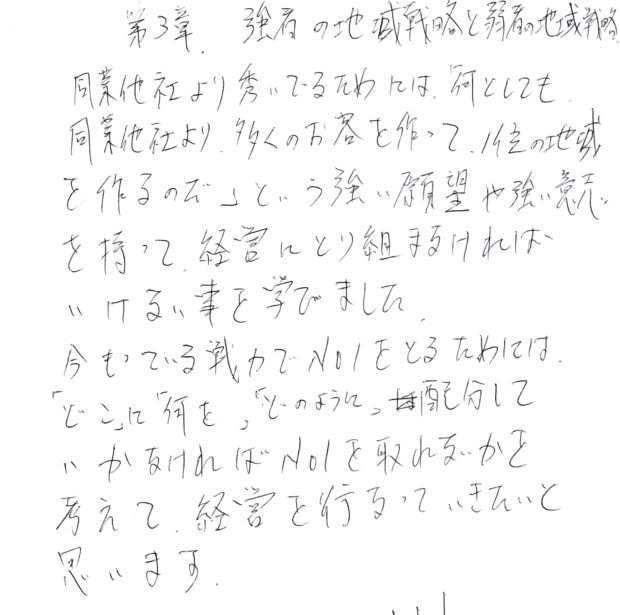 第3章. 強者の地域戦略と弱者の地域戦略
同業他社より秀いでるためには、「何としても
同業他社より、多くのお客を作って、1位の地域
を作るのだ」という強い願望や強い意志
を持って、経営にとり組まなければ
いけない事を学びました。
今もっている戦力でNO1をとるためには、
「どこ」に「何を」「どのように」配分して
いかなければNO1を取れないかを
考えて、経営を行なっていきたいと
思います。